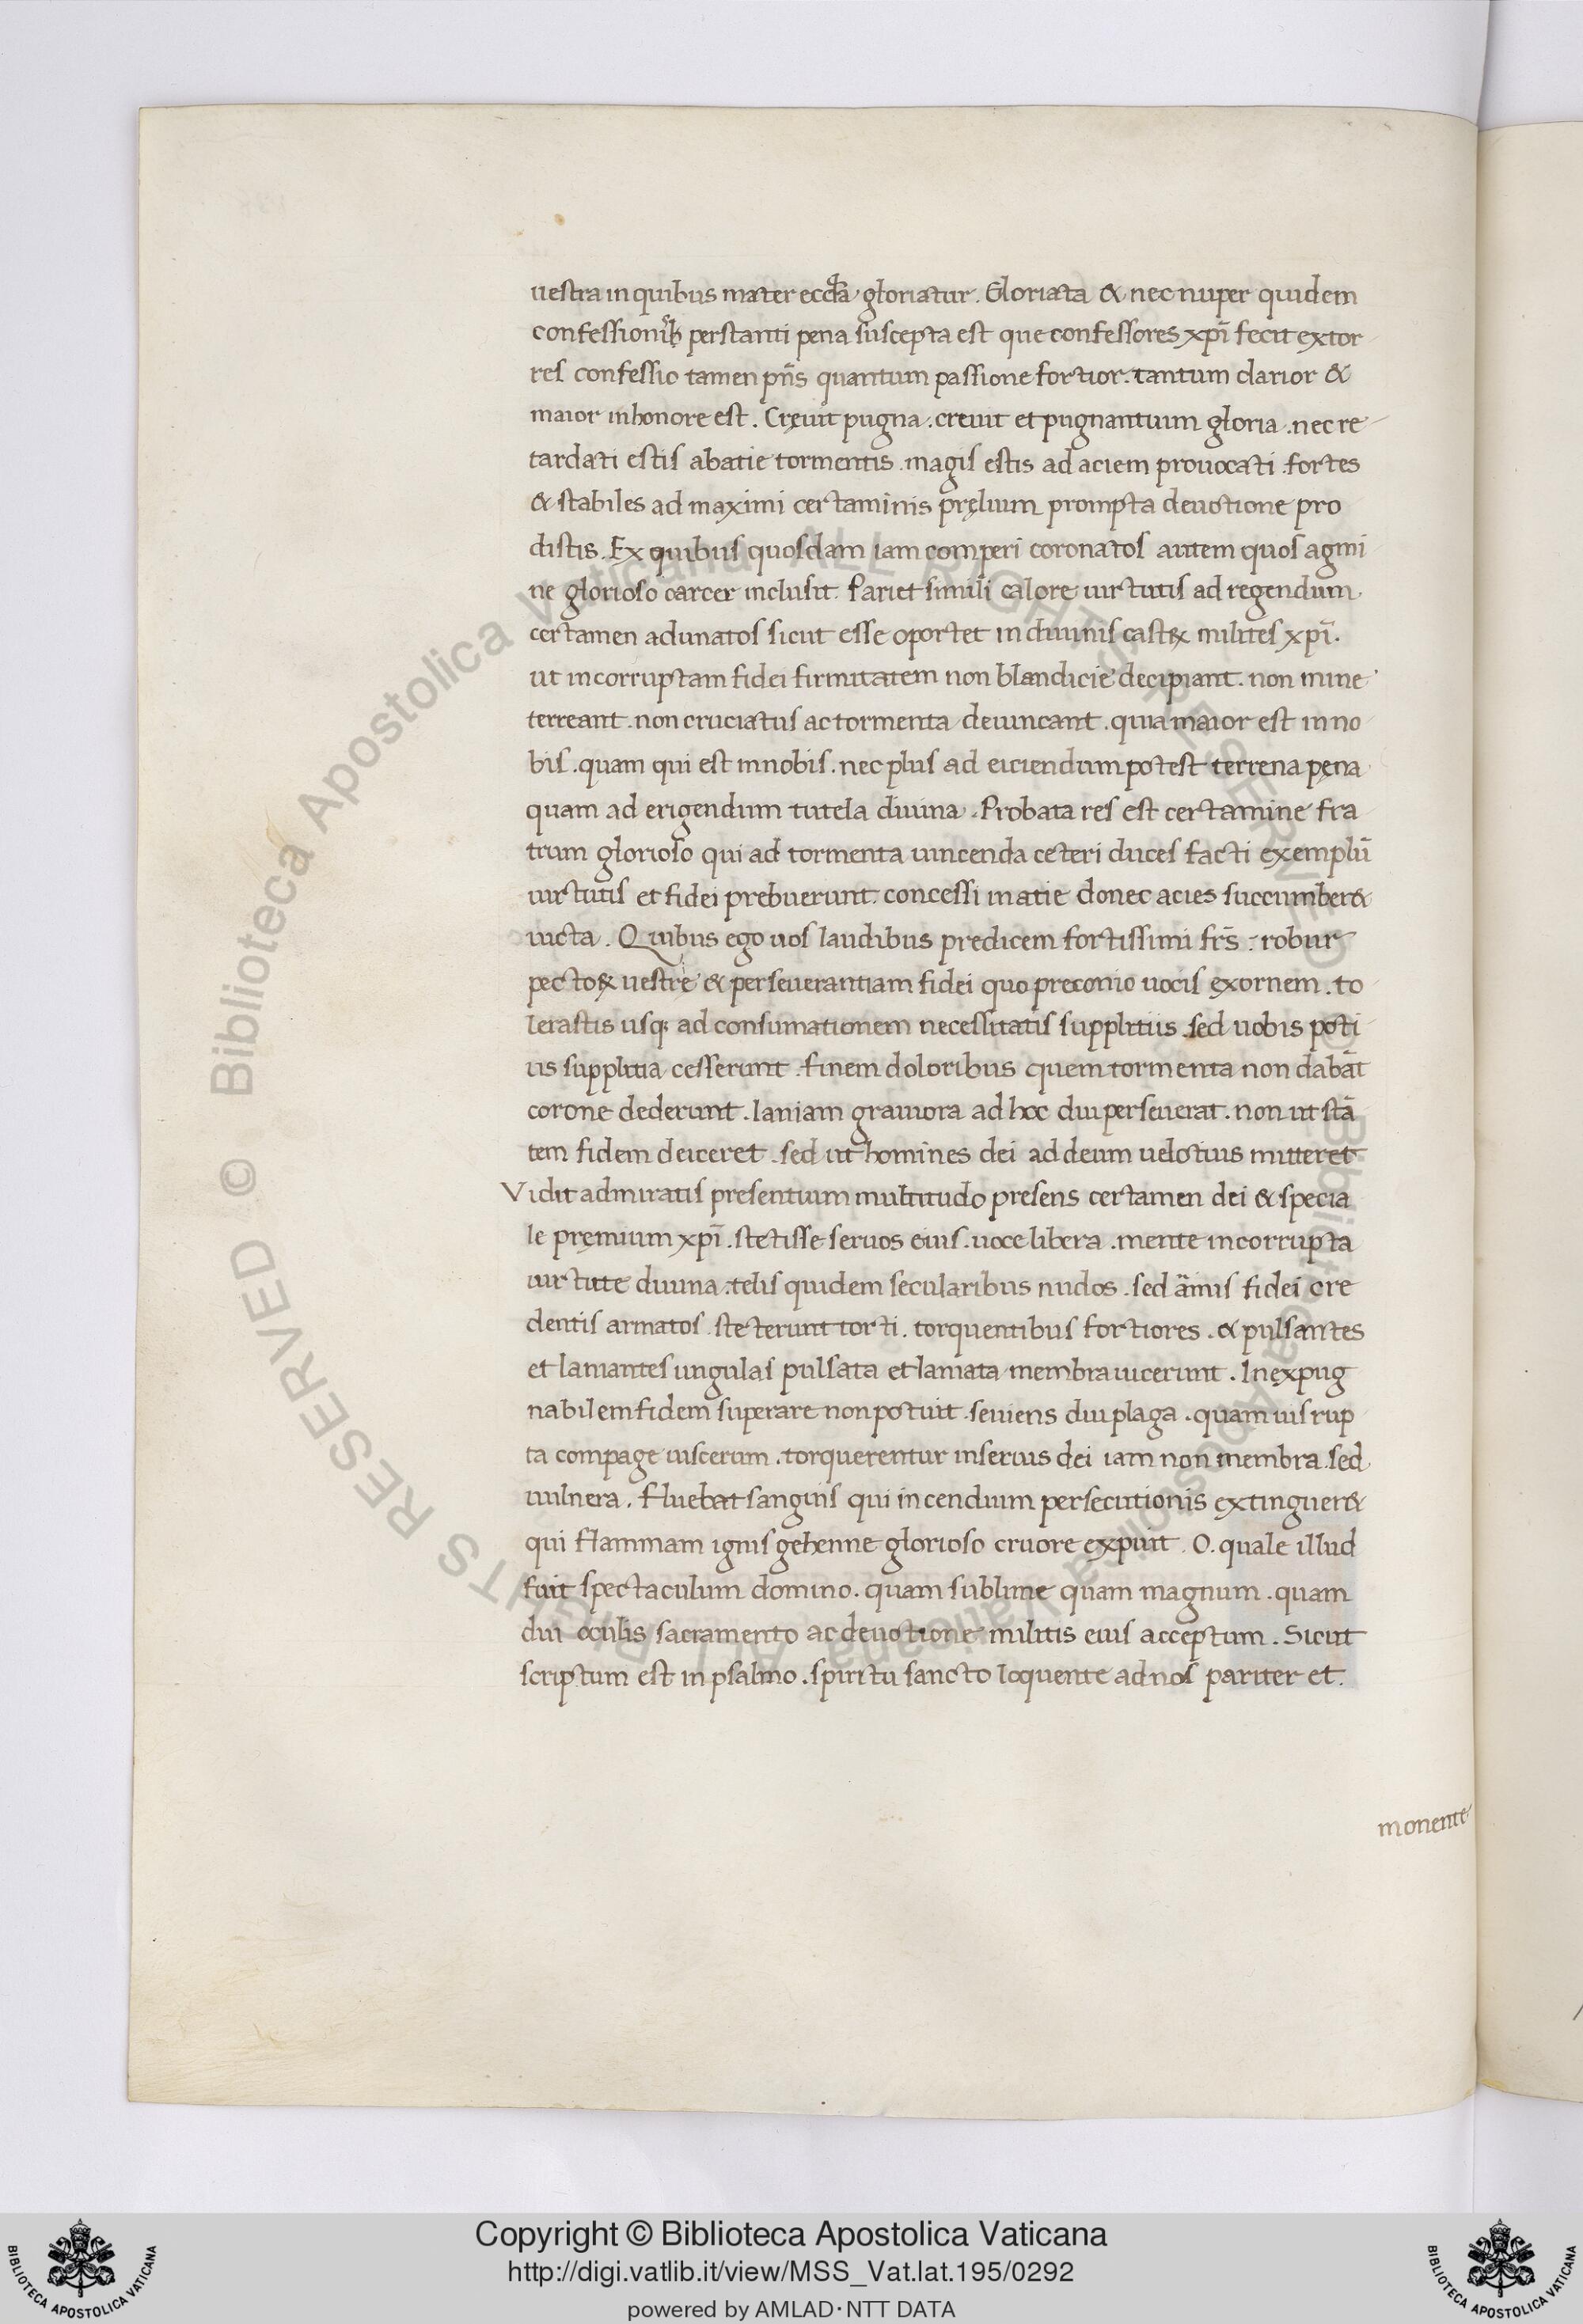 uestra in quibus mater eccl̄a gloriatur. Gloriata & nec nuper quidem
confessionib; perstanti pena suscepta est que confessores xpī fecit extor
res confessio tamen pn̄s quantum passione fortior. tantum clarior &
maior in honore est. Creuit pugna. creuit et pugnantium gloria. nec re
tardati estis abatie tormentis. magis estis ad aciem prouocati. fortes
& stabiles ad maximi certaminis prelium prompta deuotione pro
distis. Ex quibus quosdam iam comperi coronatos autem quos agmi
ne glorioso carcer inclusit. Pariet simili calore uirtutis ad regendum
certamen adunatos sicut esse oportet in diuinis castrꝝ milites xpī.
ut incorruptam fidei firmitatem non blandicie decipiant. non mine
terreant. non cruciatus ac tormenta deuincant. quia maior est in no
bis. quam qui est in nobis. nec plus ad eiciendum potest terrena pena
quam ad erigendum tutela diuina. Probata res est certamine fra
trum glorioso qui ad tormenta uincenda ceteri duces facti exemplū
uirtutis et fidei prebuerunt. concessi in atie donec acies succumber&
uicta. Quibus ego uos laudibus predicem fortissimi fr̄s. robur
pectoꝝ uestre & perseuerantiam fidei quo preconio uocis exornem. to
lerastis usq; ad consumationem necessitatis supplitiis. sed uobis poti
us supplitia cesserunt. finem doloribus quem tormenta non dabāt
corone dederunt. laniam grauiora ad hoc diu perseuerat. non ut stā
tem fidem deiceret. sed ut homines dei ad deum uelotius mitteret
Vidit admiratis presentium multitudo presens certamen dei & specia
le premium xpī. stetisse seruos eius. uoce libera. mente incorrupta
uirtute diuina. telis quidem secularibus nudos. sed amis fidei cre
dentis armatos. steterunt torti. torquentibus fortiores. & pulsantes
et laniantes ungulas pulsata et laniata membra uicerunt. Inexpug
nabilem fidem superare non potuit. seuiens diu plaga. quamuis rup
ta compage uiscerum. torquerentur in seruis dei iam non membra. sed
uulnera. Fluebat sanguis qui incendium persecutionis extinguer&
qui flammam ignis gehenne glorioso cruore expuit. O. quale illud
fuit spectaculum domino. quam sublime quam magnum. quam
diu oculis sacramento ac deuotione militis eius acceptum. Sicut
scriptum est in psalmo. spiritu sancto loquente ad nos pariter et.
monente
Copyright © Biblioteca Apostolica Vaticana
http://digi.vatlib.it/view/MSS_Vat.lat.195/0292
powered by AMLAD·NTT DATA
BIBLIOTECA APOSTOLICA VATICANA
BIBLIOTECA APOSTOLICA VATICANA
© Biblioteca Apostolica Vaticana ALL RIGHTS RESERVED
© Biblioteca Apostolica Vaticana ALL RIGHTS RESERVED